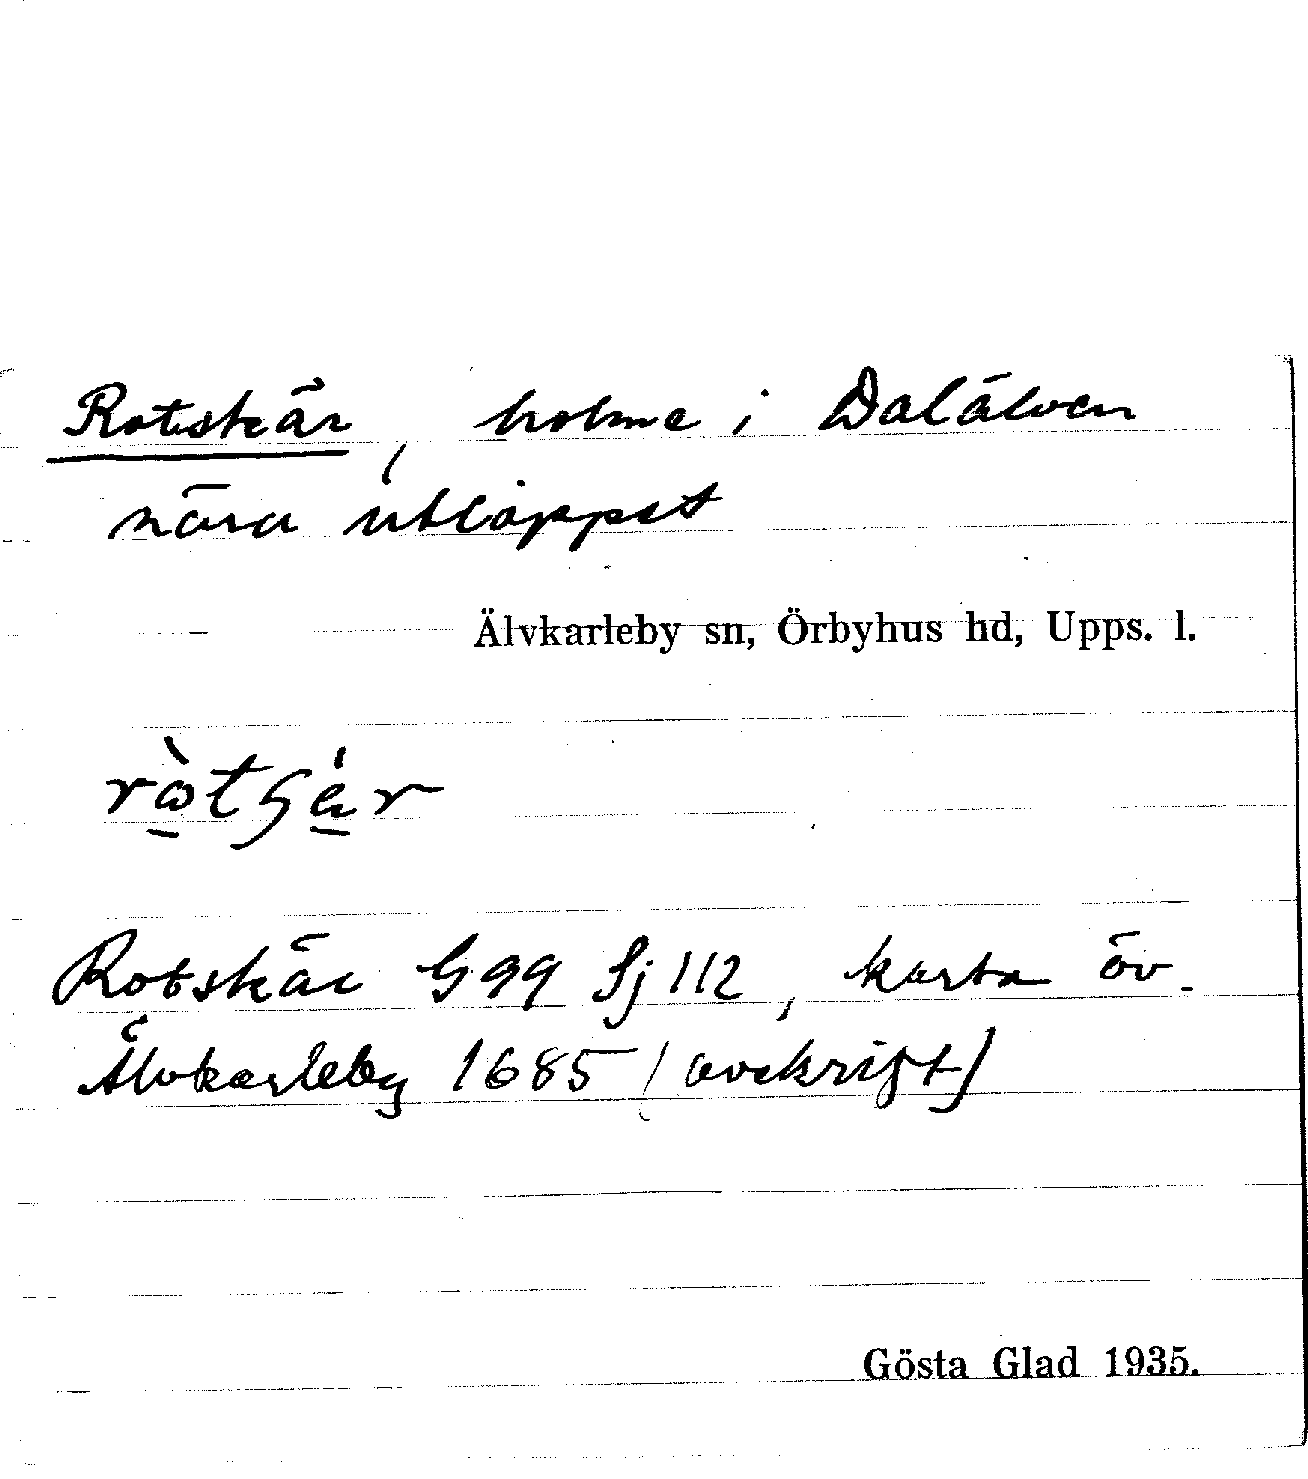 Rotskär, holme i Dalälven
nära utloppet
Älvkarleby sn, Örbyhus hd, Upps. l.
Rotskär G 99 Sj 112, karta öv.
Älvkarleby 1685 (avskrift)
Gösta Glad 1935.